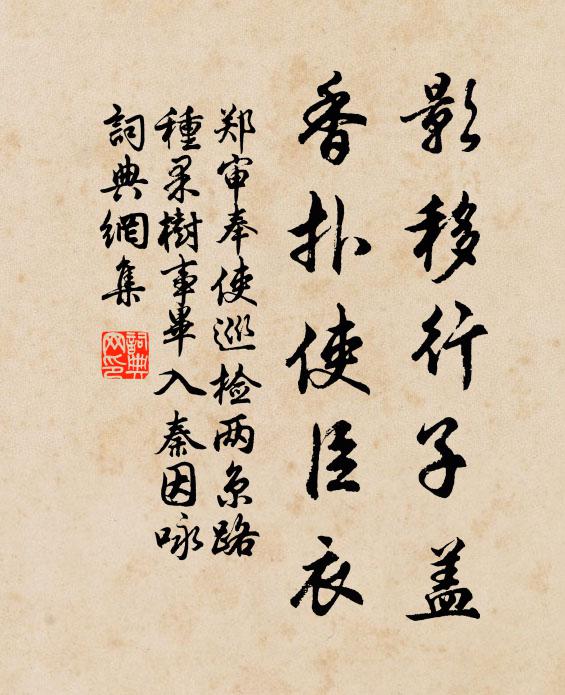 影移行子盖
香扑使臣衣
郑审奉使巡检两京路
種果樹事畢入秦因咏
詞典網集
詞典網印